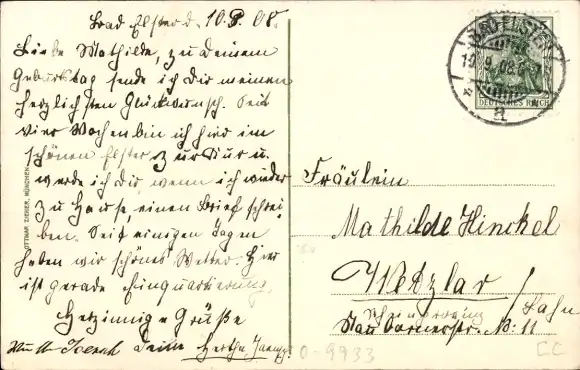 Bad Elster d. 10.9.08.
Liebe Mathilde, zu Deinem
Geburtstag sende ich Dir meinen
herzlichsten Glückwunsch. Seit
vier Wochen bin ich hier im
schönen Elster zur Kur u.
werde ich Dir wenn ich wieder
zu Hause, einen Brief schrei-
ben. Seit einigen Tagen
haben wir schönes Wetter. Hier
ist gerade Einquartierung.
Herzinnige Grüße
Deine Hertha
OTTMAR ZIEHER, MÜNCHEN
BAD ELSTER
10.9.08.
DEUTSCHES REICH
a
Fräulein
Mathilde Hinckel
Wetzlar / Lahn
Rheinprovinz
Naubornerstr. No: 11
0-9933
CC